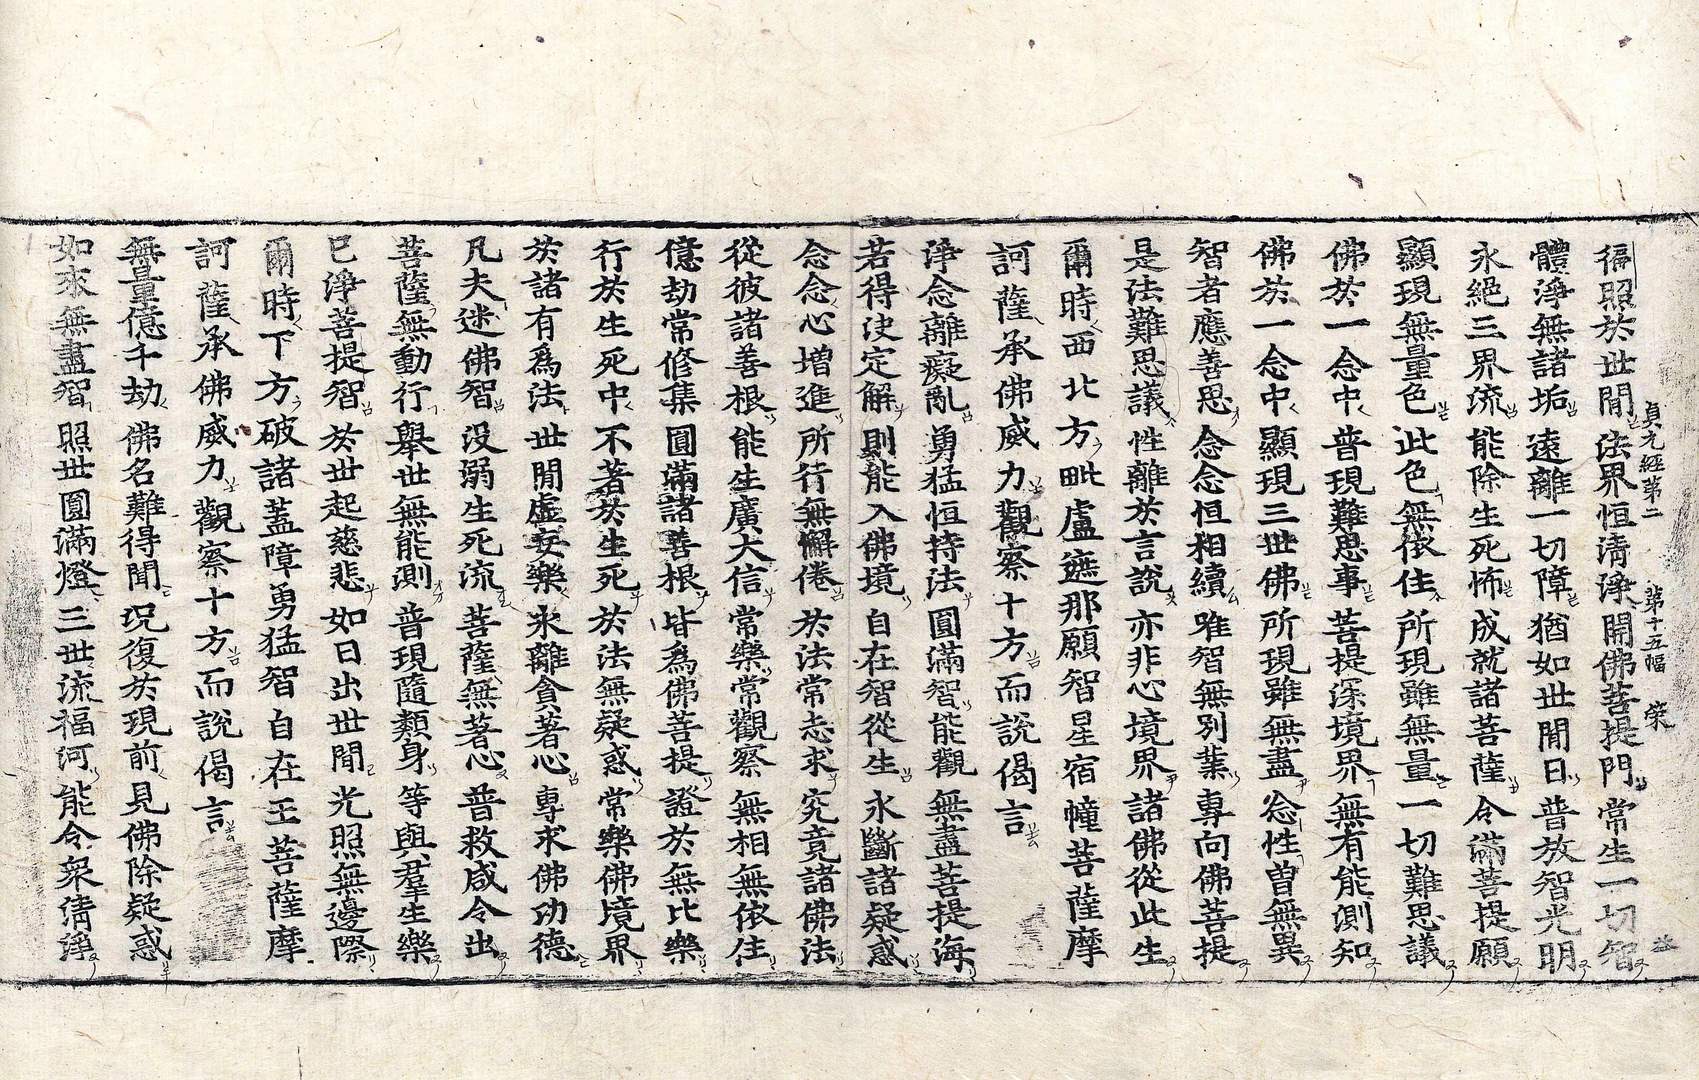 徧照於世閒 法界恒清淨 開佛菩提門 常生一切智
貞元經第二 第十五幅 榮
體淨無諸垢 遠離一切障 猶如世閒日 普放智光明
永絕三界流 能除生死怖 成就諸菩薩 令滿菩提願
顯現無量色 此色無依住 所現雖無量 一切難思議
佛於一念中 普現難思事 菩提深境界 無有能測知
佛於一念中 顯現三世佛 所現雖無盡 念性曾無異
智者應善思 念念恒相續 唯智無別業 專向佛菩提
是法難思議 性離於言說 亦非心境界 諸佛從此生
爾時西北方毗盧遮那願智星宿幢菩薩摩
訶薩承佛威力觀察十方而說偈言
淨念離癡亂 勇猛恒持法 圓滿智能觀 無盡菩提海
若得決定解 則能入佛境 自在智從生 永斷諸疑惑
念念心增進 所行無懈倦 於法常志求 究竟諸佛法
從彼諸善根 能生廣大信 常樂常觀察 無相無依住
億劫常修集 圓滿諸善根 皆爲佛菩提 證於無比樂
行於生死中 不著於生死 於法無疑惑 常樂佛境界
於諸有爲法 世閒虛妄樂 永離貪著心 專求佛功德
凡夫迷佛智 沒溺生死流 菩薩無著心 普救咸令出
菩薩無動行 舉世無能測 普現隨類身 等與羣生樂
已淨菩提智 於世起慈悲 如日出世閒 光照無邊際
爾時下方破諸蓋障勇猛智自在王菩薩摩
訶薩承佛威力觀察十方而說偈言
無量億千劫 佛名難得聞 況復於現前 見佛除疑惑
如來無盡智 照世圓滿燈 三世流福河 能令衆淸淨